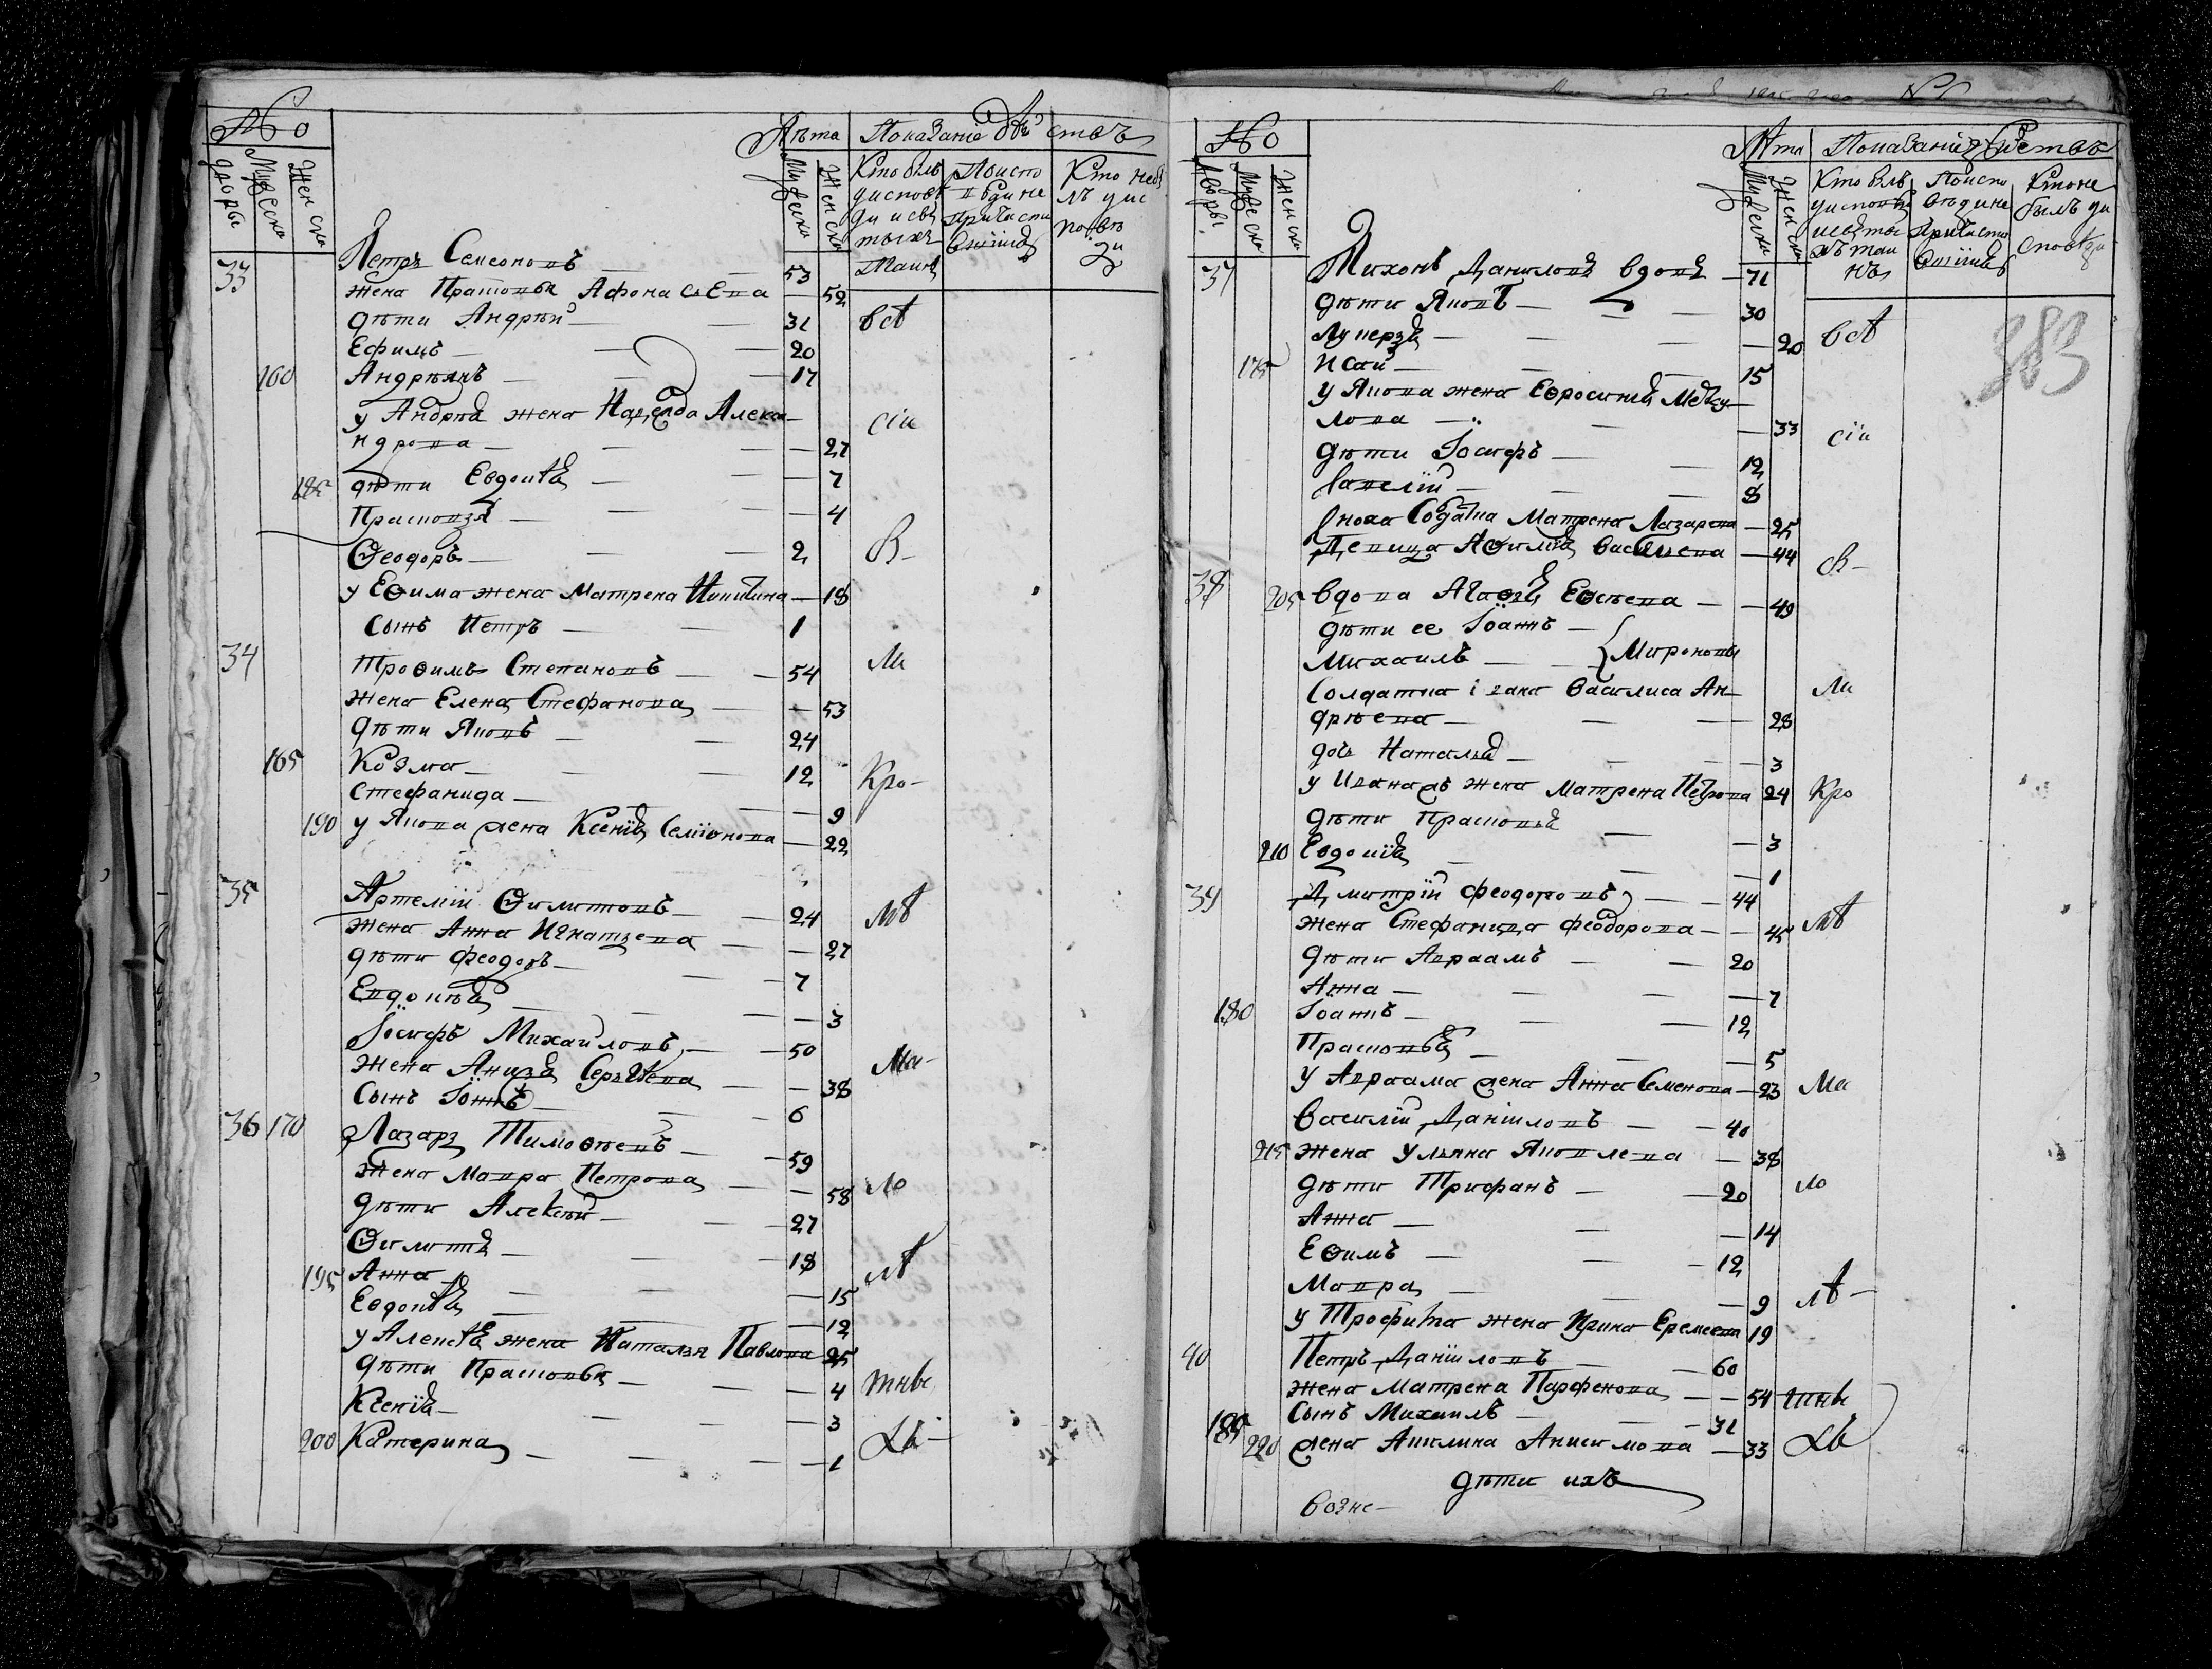 №
Лѣта Показаніе дѣйствъ
Дворы Мужеска Женска
Мужеска Женска
Кто былъ у исповѣди и святыхъ Таинъ
По исповѣди не причастившіеся
Кто не былъ у исповѣди
33 Петръ Семеоновъ — 53
жена Прасковья Афонасьева — 52
дѣти Андрей — 31 всѣ
Ефимъ — 20
160 Андреянъ — 17
у Андрея жена Надежда Алекса
ндрова — 27 сіи
185 дѣти Евдокія — 7
Прасковья — 4
Ѳеодоръ — 2 в-
у Еѳима жена Матрена Никитина — 18
сынъ Петръ — 1
34 Троѳимъ Степановъ — 54 ли
жена Елена Стефанова — 53
дѣти Яковъ — 24
165 Козма — 12 кро-
Стефанида — 9
190 у Якова жена Ксенія Семіонова — 22
35 Артемій Ѳилиповъ — 24 мѣ
жена Анна Игнатьева — 27
дѣти Феодоръ — 7
Евдокія — 3
Іосифъ Михаиловъ — 50
жена Анна Сергѣева — 38 ма-
сынъ Іоаннъ — 6
36 170 Лазарь Тимоѳеевъ — 59
жена Мавра Петрова — 58 ло
дѣти Алексѣй — 27
Ѳилипъ — 18
195 Анна — 15 лѣ
Евдокія — 12
у Алексѣя жена Наталья Павлова 25
дѣти Прасковья — 4 тнь
Ксенія — 3
200 Катерина — 1
№
Лѣта Показаніе дѣйствъ
Дворы Мужеска Женска
Мужеска Женска
Кто былъ у исповѣди и святыхъ таинъ
По исповѣди не причастившіеся
Кто не былъ у исповѣди
383
37 Тихонъ Даниловъ вдовъ — 71
дѣти Яковъ — 30
Лукерья — 20 всѣ
175 Исай — 15
у Якова жена Ефросинья
лова — 33 сіи
дѣти Іосифъ — 12
Савелій — 8
сноха Солдатка Матрена Лазарева — 25
Девица Аѳимія Васильева — 44 в-
38 205 вдова Агаѳья Еѳсеева — 49
дѣти ее Іоаннъ —
Михаилъ — { Мироновы
Солдатка Василиса Ан- ли
дреева — 28
дочь Наталья — 3
у Ивана жена Матрена Петрова 24 кро
дѣти Прасковья — 3
210 Евдокія — 1
39 Дмитрій Феодоровъ — 44
жена Стефанида Феодорова — 45 мѣ
дѣти Авраамъ — 20
Анна — 7
180 Іоаннъ — 12
Прасковья — 5
у Авраама жена Анна Семенова — 23 ма
Василій Даніиловъ — 40
215 жена Ульяна Яковлева — 38
дѣти Трифанъ — 20 ло
Анна — 14
Еѳимъ — 12
Мавра — 9 лѣ-
у Трофима жена Ирина Еремеева 19
40 Петръ Даніиловъ — 60
жена Матрена Парфенова — 54 тнь
185 сынъ Михаилъ — 31
220 жена Акилина Анисимова — 33
дѣти ихъ
возне-